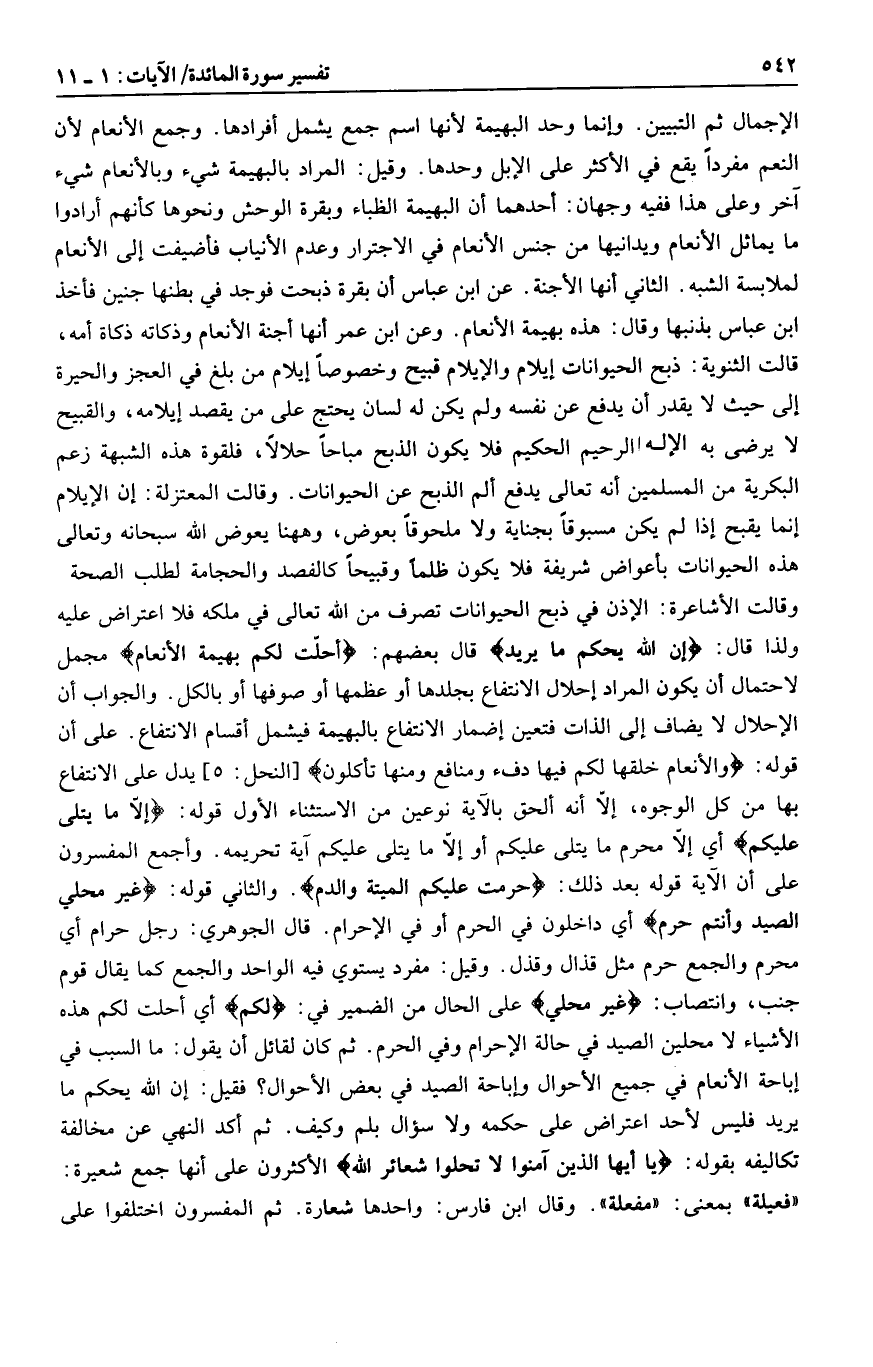 ٥٤٢
تفسير سورة المائدة/ الآيات: ١ ـ ١١
الإجمال ثم التبيين. وإنما وحد البهيمة لأنها اسم جمع يشمل أفرادها. وجمع الأنعام لأن
النعم مفرداً يقع في الأكثر على الإبل وحدها. وقيل: المراد بالبهيمة شيء وبالأنعام شيء
آخر وعلى هذا ففيه وجهان: أحدهما أن البهيمة الظباء وبقرة الوحش ونحوها كأنهم أرادوا
ما يماثل الأنعام ويدانيها من جنس الأنعام في الاجترار وعدم الأنياب فأضيفت إلى الأنعام
لملابسة الشبه. الثاني أنها الأجنة. عن ابن عباس أن بقرة ذبحت فوجد في بطنها جنين فأخذ
ابن عباس بذنبها وقال: هذه بهيمة الأنعام. وعن ابن عمر أنها أجنة الأنعام وذكاته ذكاة أمه،
قالت الثنوية: ذبح الحيوانات إيلام والإيلام قبيح وخصوصاً إيلام من بلغ في العجز والحيرة
إلى حيث لا يقدر أن يدفع عن نفسه ولم يكن له لسان يحتج على من يقصد إيلامه، والقبيح
لا يرضى به الإله الرحيم الحكيم فلا يكون الذبح مباحاً حلالاً، فلقوة هذه الشبهة زعم
البكرية من المسلمين أنه تعالى يدفع ألم الذبح عن الحيوانات. وقالت المعتزلة: إن الإيلام
إنما يقبح إذا لم يكن مسبوقاً بجناية ولا ملحوقاً بعوض، وههنا يعوض الله سبحانه وتعالى
هذه الحيوانات بأعواض شريفة فلا يكون ظلماً وقبيحاً كالفصد والحجامة لطلب الصحة
وقالت الأشاعرة: الإذن في ذبح الحيوانات تصرف من الله تعالى في ملكه فلا اعتراض عليه
ولذا قال: ﴿إن الله يحكم ما يريد﴾ قال بعضهم: ﴿أحلّت لكم بهيمة الأنعام﴾ مجمل
لاحتمال أن يكون المراد إحلال الانتفاع بجلدها أو عظمها أو صوفها أو بالكل. والجواب أن
الإحلال لا يضاف إلى الذات فتعين إضمار الانتفاع بالبهيمة فيشمل أقسام الانتفاع. على أن
قوله: ﴿والأنعام خلقها لكم فيها دفء ومنافع ومنها تأكلون﴾ [النحل: ٥] يدل على الانتفاع
بها من كل الوجوه، إلّا أنه ألحق بالآية نوعين من الاستثناء الأول قوله: ﴿إلّا ما يتلى
عليكم﴾ أي إلّا محرم ما يتلى عليكم أو إلّا ما يتلى عليكم آية تحريمه. وأجمع المفسرون
على أن الآية قوله بعد ذلك: ﴿حرمت عليكم الميتة والدم﴾. والثاني قوله: ﴿غير محلي
الصيد وأنتم حرم﴾ أي داخلون في الحرم أو في الإحرام. قال الجوهري: رجل حرام أي
محرم والجمع حرم مثل قذال وقذل. وقيل: مفرد يستوي فيه الواحد والجمع كما يقال قوم
جنب، وانتصاب: ﴿غير محلي﴾ على الحال من الضمير في: ﴿لكم﴾ أي أحلت لكم هذه
الأشياء لا محلين الصيد في حالة الإحرام وفي الحرم. ثم كان لقائل أن يقول: ما السبب في
إباحة الأنعام في جميع الأحوال وإباحة الصيد في بعض الأحوال؟ فقيل: إن الله يحكم ما
يريد فليس لأحد اعتراض على حكمه ولا سؤال بلم وكيف. ثم أكد النهي عن مخالفة
تكاليفه بقوله: ﴿يا أيها الذين آمنوا لا تحلوا شعائر الله﴾ الأكثرون على أنها جمع شعيرة:
«فعيلة» بمعنى: «مفعلة». وقال ابن فارس: واحدها شعارة. ثم المفسرون اختلفوا على